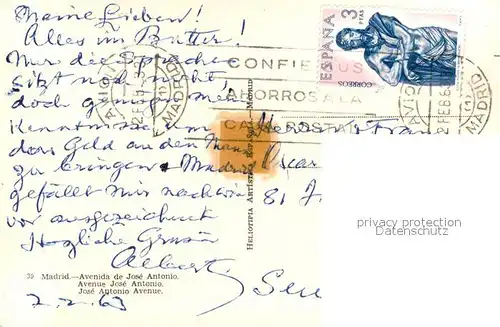 Meine Lieben!
Alles in Butter!
Nur die Sprache
sitzt noch nicht,
doch genügen meine
Kenntnisse um
das Geld an den Mann
zu bringen. Madrid
gefällt mir nach wie
vor ausgezeichnet
Herzliche Grüsse
Albert
39 Madrid.—Avenida de José Antonio.
Avenue José Antonio.
José Antonio Avenue.
2.2.63
HELIOTIPIA ARTISTICA ESPAÑOLA - MADRID
3
PTAS
ESPAÑA
CORREOS
CONFIE SUS
AHORROS A LA
CAJA POSTAL
AVION
MADRID
AVION
2 FEB 6
MADRID
Oscar
81 F.
privacy protection